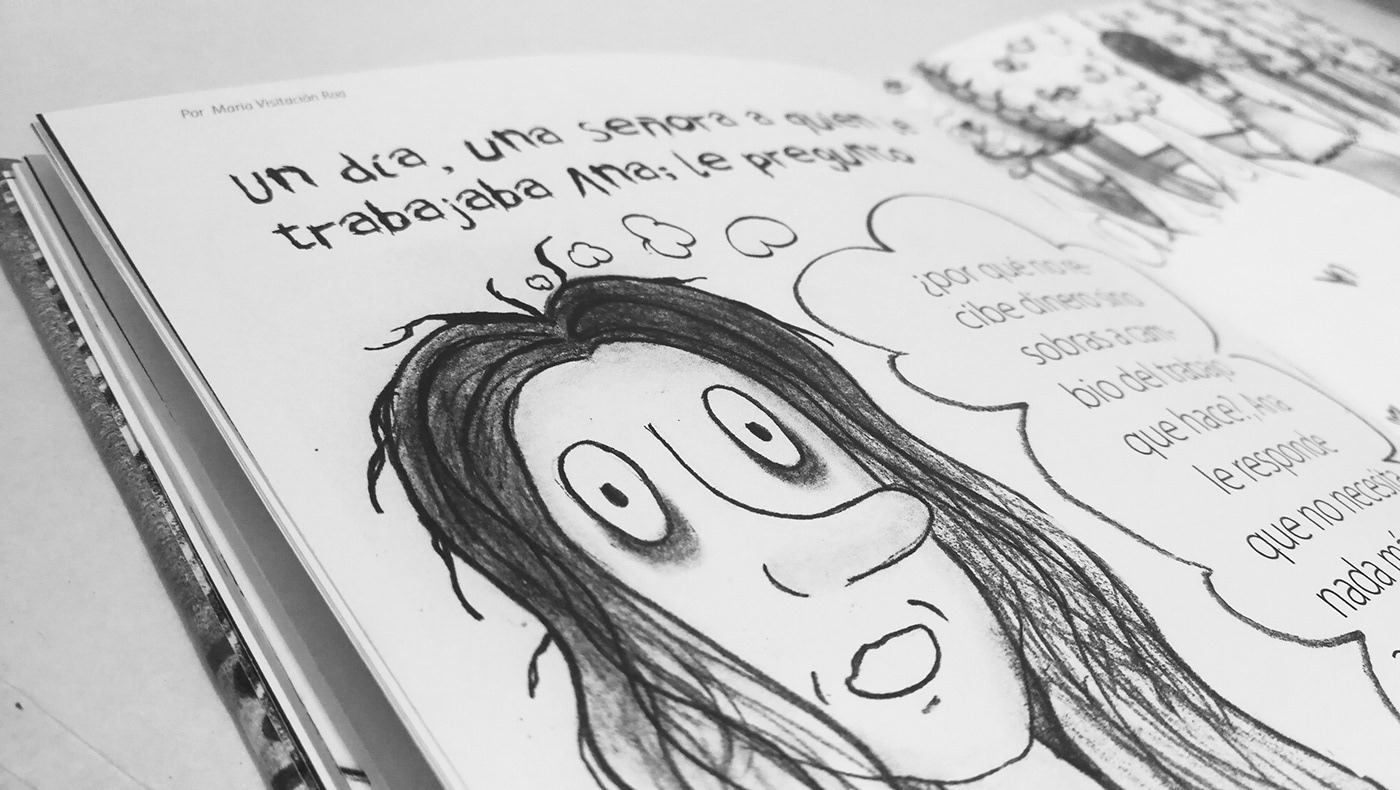 Por María Visitación Roa
un día, una señora a quien le
trabajaba Ana; le pregunto
¿por qué no re-
cibe dinero sino
sobras a cam-
bio del trabajo
que hace?, Ana
le responde
que no necesita
nada